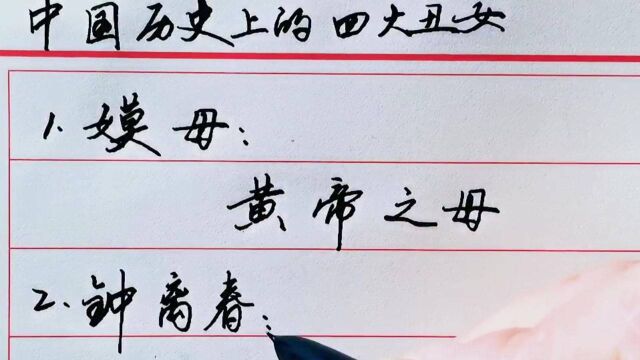 中国历史上的四大丑女
1.嫫母：
黄帝之母
2.钟离春：